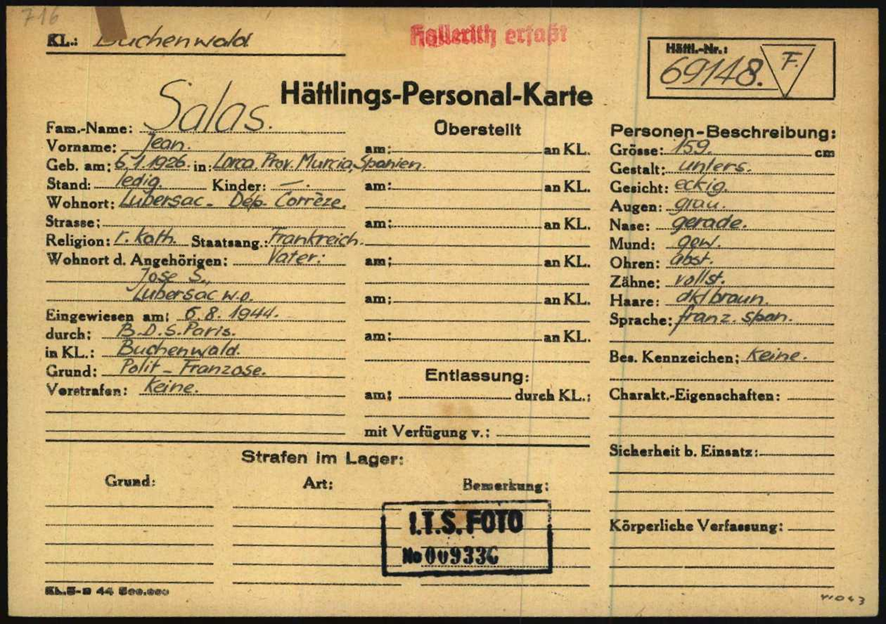 716
KL.: Buchenwald
Hollerith erfaßt
Häftl.-Nr.:
69148. F.
Häftlings-Personal-Karte
Fam.-Name: Salas.
Vorname: Jean.
Geb. am: 6.1.1926. in: Lorca, Prov. Murcia, Spanien.
Stand: ledig. Kinder: —.
Wohnort: Lubersac - Dép. Corrèze.
Strasse:
Religion: r. kath. Staatsang.: Frankreich.
Wohnort d. Angehörigen: Vater:
Jose S.,
Lubersac w.o.
Eingewiesen am: 6.8.1944.
durch: B.D.S. Paris.
in KL.: Buchenwald.
Grund: Polit - Franzose.
Vorstrafen: Keine.
Überstellt
am: an KL.
am: an KL.
am: an KL.
am: an KL.
am: an KL.
am: an KL.
Entlassung:
am: durch KL.:
mit Verfügung v.:
Personen-Beschreibung:
Grösse: 159. cm
Gestalt: unters.
Gesicht: eckig.
Augen: grau.
Nase: gerade.
Mund: gew.
Ohren: abst.
Zähne: vollst.
Haare: dklbraun.
Sprache: franz. span.
Bes. Kennzeichen: Keine.
Charakt.-Eigenschaften:
Sicherheit b. Einsatz:
Körperliche Verfassung:
Strafen im Lager:
Grund: Art: Bemerkung:
I.T.S. FOTO
No 009336